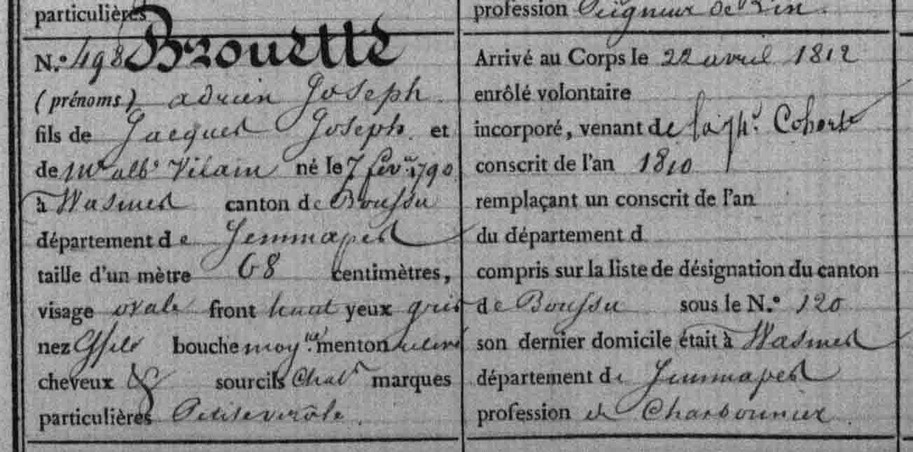 particulières
N.º 498 Brouette
(prénoms) adrien Joseph
fils de Jacques Joseph et
de Mie albe Vilain né le 7 fevr. 1790
à Wasmes canton de Boussu
département de Jemmapes
taille d'un mètre 68 centimètres,
visage ovale front haut yeux gris
nez bouche moyne menton
cheveux & sourcils Chatn marques
particulières Petite verole.
profession Peigneur de Lin.
Arrivé au Corps le 22 avril 1812
enrôlé volontaire
incorporé, venant de la Cohorte
conscrit de l'an 1810
remplaçant un conscrit de l'an
du département d
compris sur la liste de désignation du canton
de Boussu sous le N.º 120
son dernier domicile était à Wasmes
département de Jemmapes
profession de Charbonnier